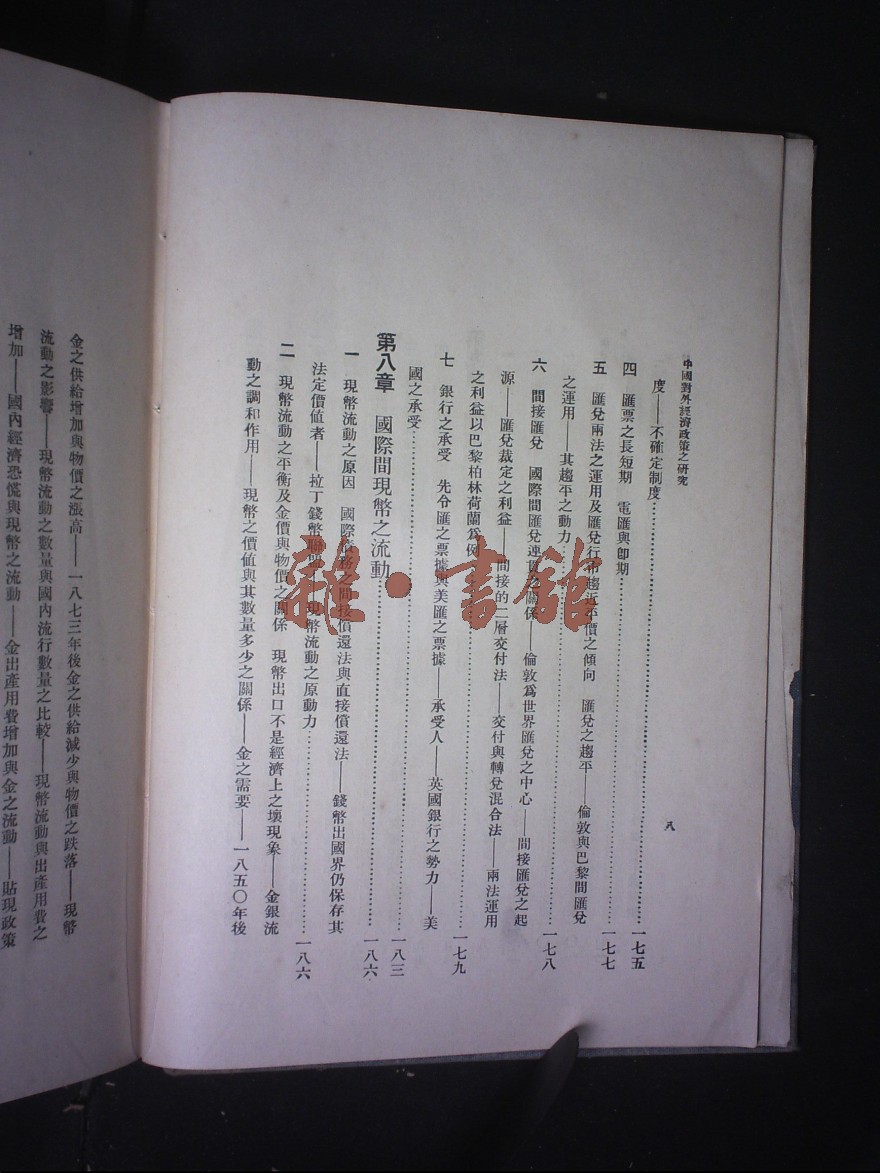 中國對外經濟政策之研究
八
度——不確定制度……一七五
四 匯票之長短期 電匯與卽期……一七七
五 匯兌兩法之運用及匯兌行市趨近平價之傾向 匯兌之趨平——倫敦與巴黎間匯兌
之運用——其趨平之動力……一七八
六 間接匯兌 國際間匯兌連貫之關係——倫敦爲世界匯兌之中心——間接匯兌之起
源——匯兌裁定之利益——間接的二層交付法——交付與轉兌混合法——兩法運用
之利益以巴黎柏林荷蘭爲例……一七九
七 銀行之承受 先令匯之票據與美匯之票據——承受人——英國銀行之勢力——美
國之承受……一八三
第八章 國際間現幣之流動……一八六
一 現幣流動之原因 國際債務之間接償還法與直接償還法——錢幣出國界仍保存其
法定價値者——拉丁錢幣聯盟——現幣流動之原動力……一八六
二 現幣流動之平衡及金價與物價之關係 現幣出口不是經濟上之壞現象——金銀流
動之調和作用——現幣之價値與其數量多少之關係——金之需要——一八五〇年後
金之供給增加與物價之漲高——一八七三年後金之供給減少與物價之跌落——現幣
流動之影響——現幣流動之數量與國內流行數量之比較——現幣流動與出產用費之
增加——國內經濟恐慌與現幣之流動——金出產用費增加與金之流動——貼現政策
雜·書館